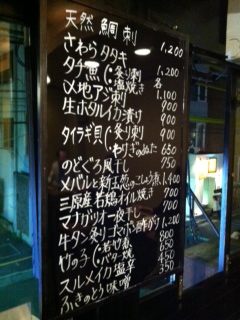 天然 鯛 刺 1,200
さわら タタキ
タチ魚 炙り刺 1,200
塩焼き 各
〆地アジ刺 1,100
生ホタルイカ漬け 900
タイラギ貝 炙り刺 900
わけぎのぬた 650
のどぐろ風干し 750
メバルと新玉葱のこしょう煮 1,400
三原産 若鶏オイル焼き 700
マナガツオ一夜干し 900
牛タン炙りゴマポン酢がけ 1,200
竹の子 若竹煮 800
バター焼 650
スルメイカ塩辛 450
ふきのとう味噌 350